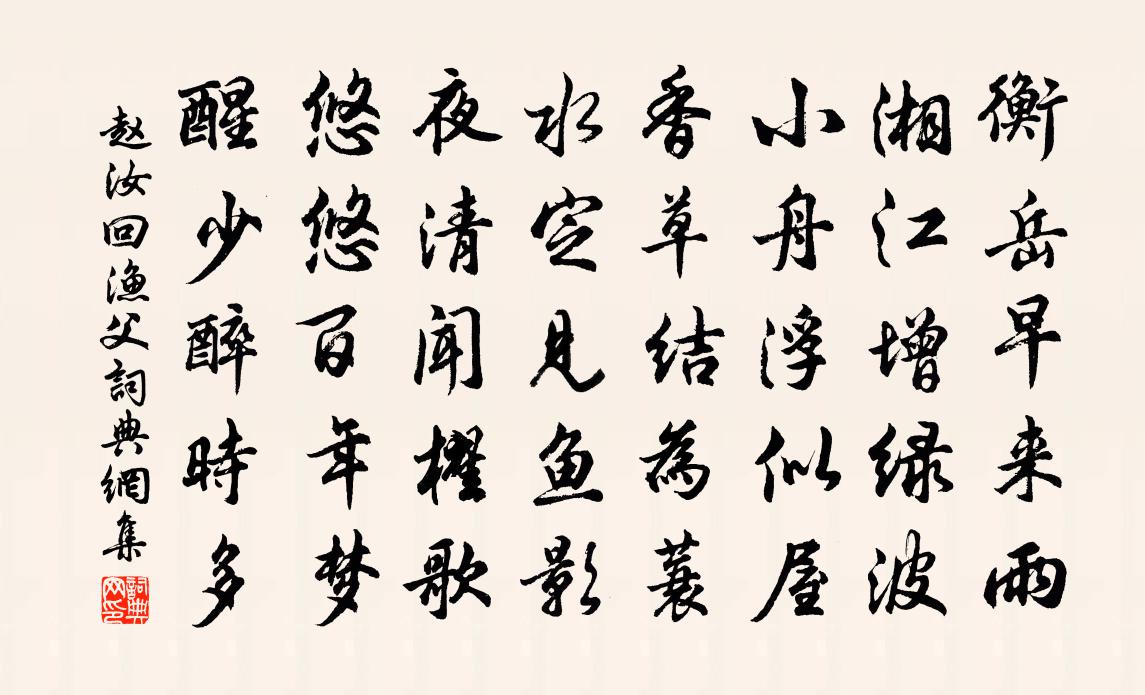 衡岳早来雨
湘江增绿波
小舟浮似屋
香草结為蓑
水定見鱼影
夜清闻櫂歌
悠悠百年梦
醒少醉時多
赵汝回渔父詞典網集
詞典网印